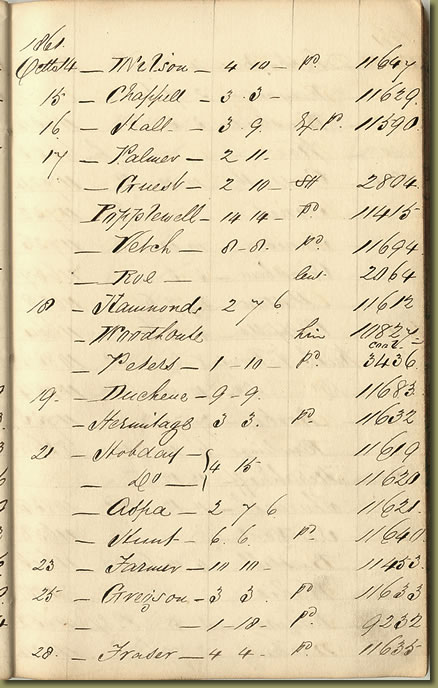 1861.
Octob 14 — Wilson — 4 10 — pd. 11647
15 — Chappell — 3 . 3 — 11629
16 — Hall — 3 9. pd. 11590
17 — Palmer — 2 11.
— Cruest — 2 10 — 2804
Pipplewell — 14 14 — pd 11415
— Vetch — 8 — 8. pd 11694
— Roe — 2064
18 — Hammond. 2 7 6 11612
— Woodhouse 10827
— Peters — 1 — 10 — pd. 3436
19. — Duchene — 9 — 9. 11683
— Hermitage 3 3. pd. 11632
21 — Hobday — 4 15 11619
— Do — 11620
— Aspa — 2 7 6 11621
— Hunt — 6. 6. pd. 11640
23 — Farmer — 10 10 — 11453
25 — Gregson — 3 3. pd 11633
— 1 — 18 — pd. 9232
28. — Fraser — 4 4 . pd. 11635